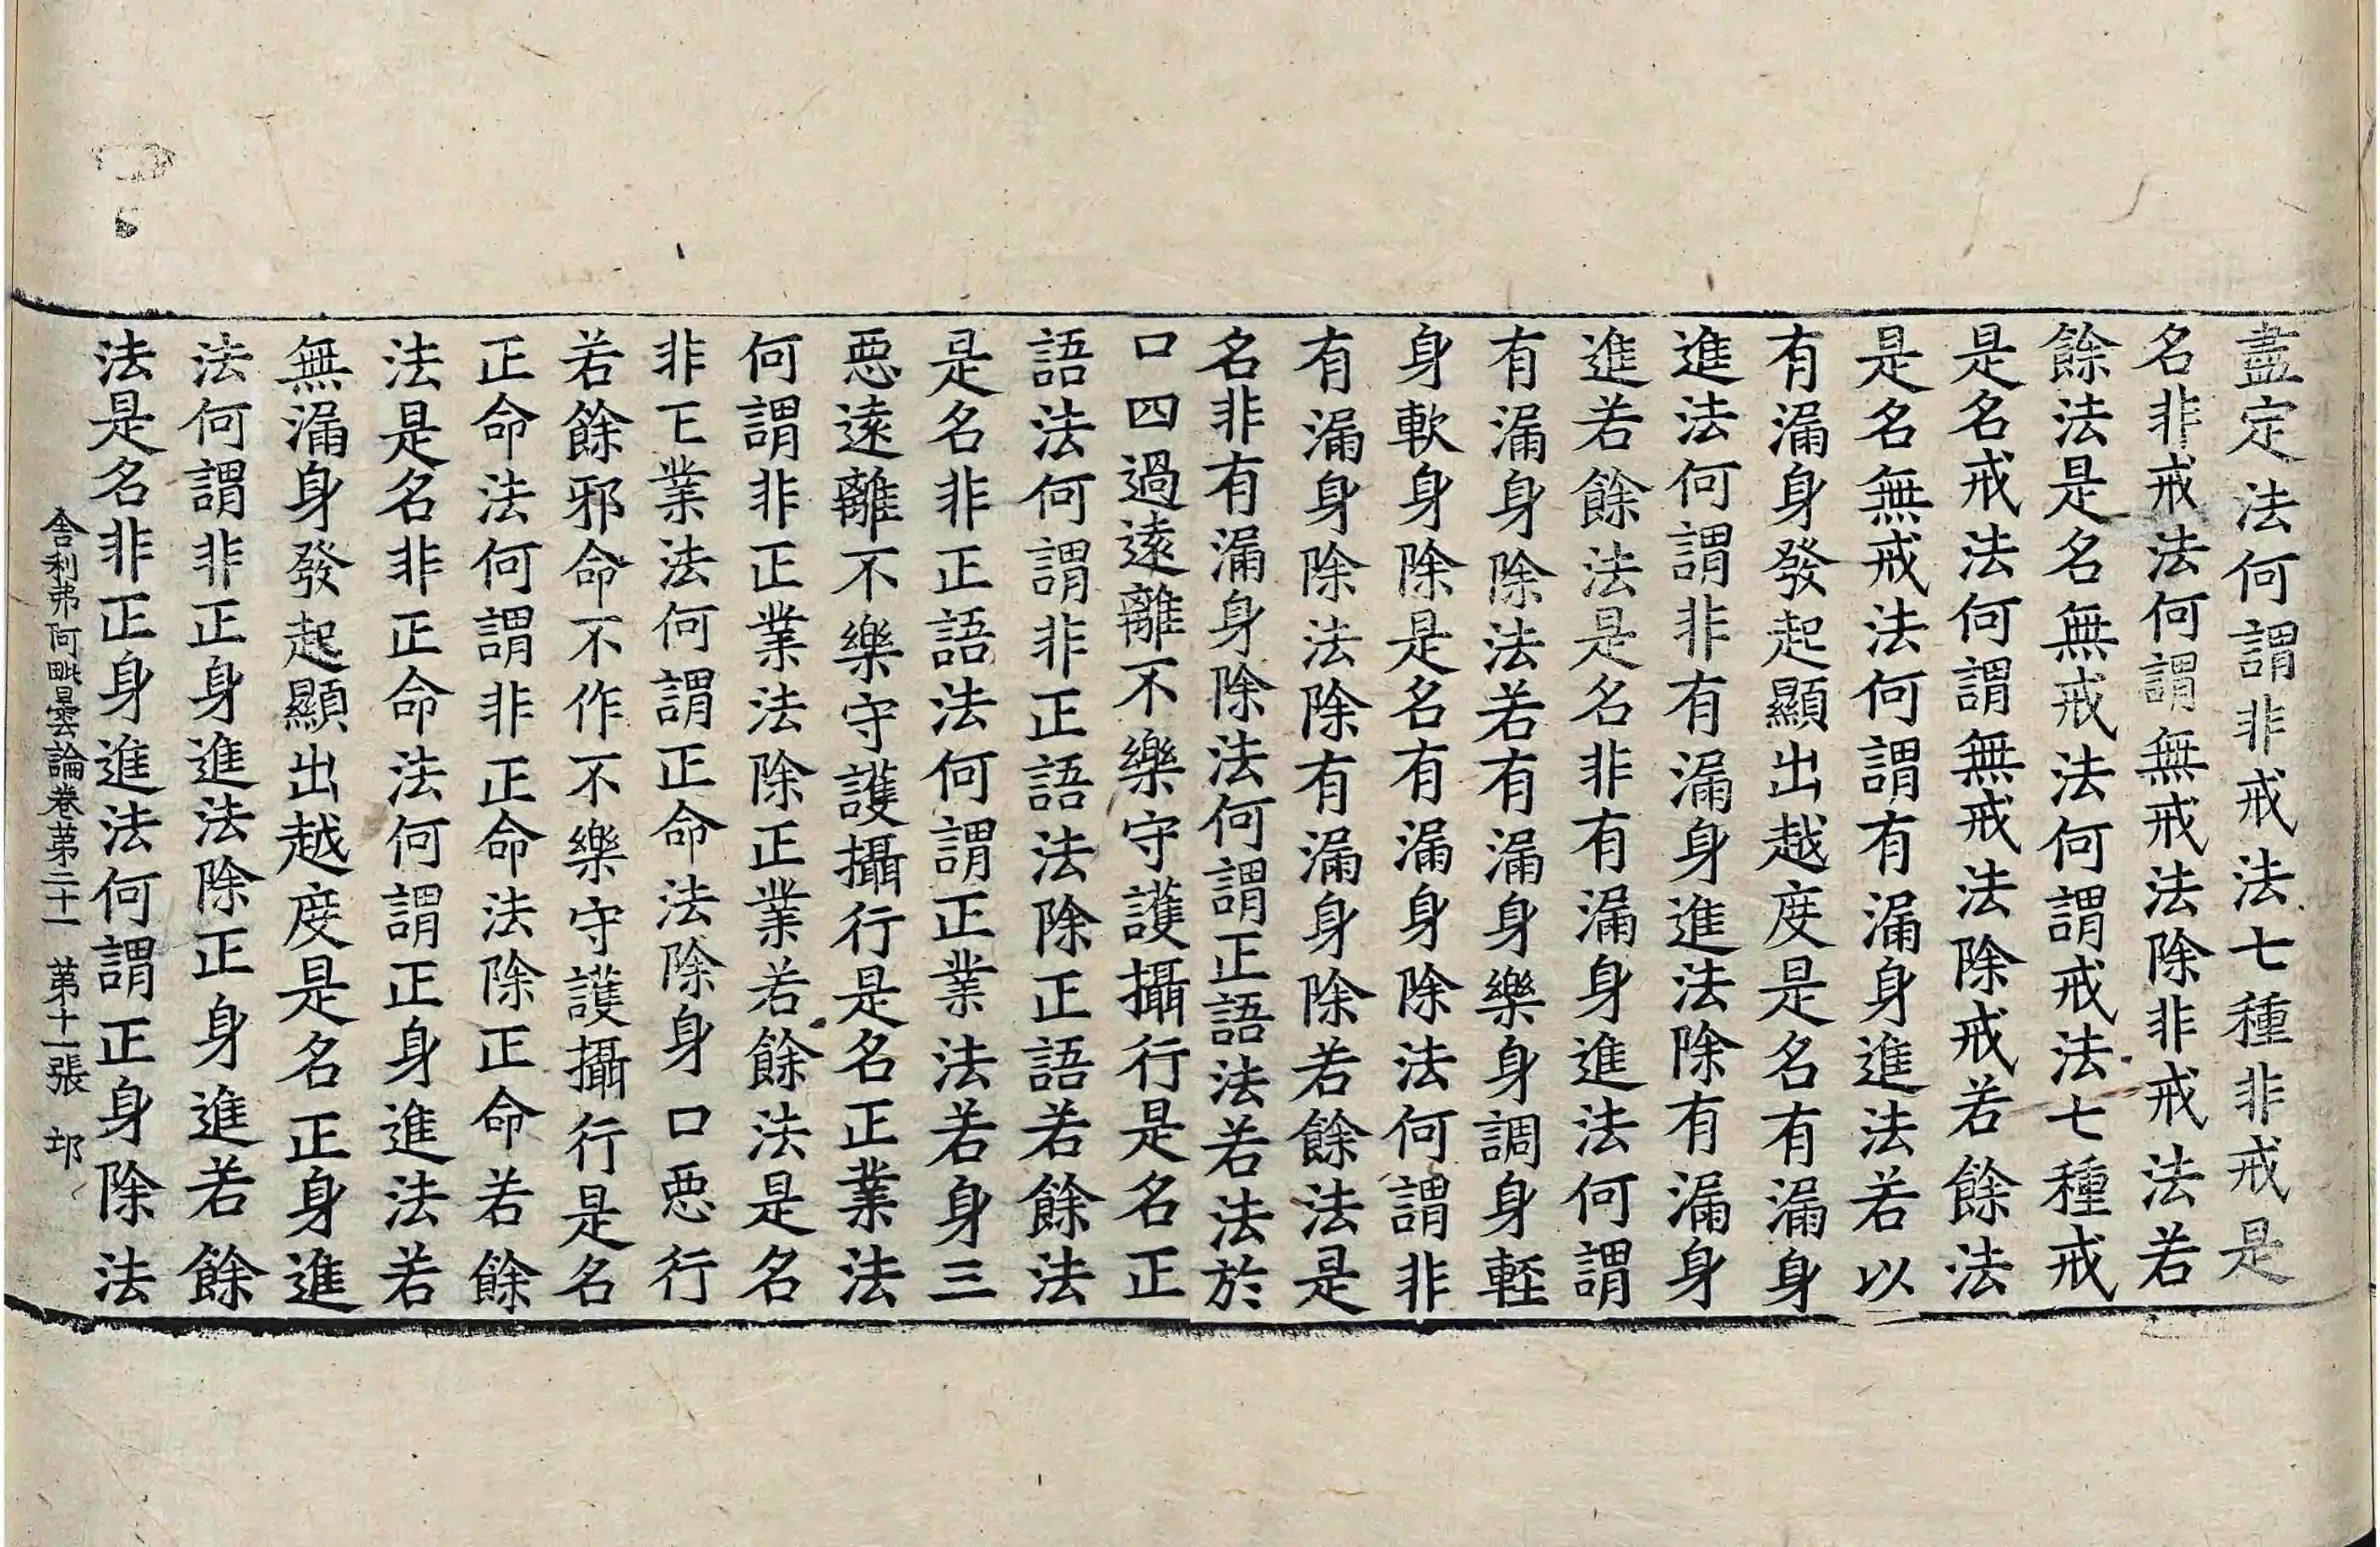 盡定法何謂非戒法七種非戒是
名非戒法何謂無戒法除非戒法若
餘法是名無戒法何謂戒法七種戒
是名戒法何謂無戒法除戒若餘法
是名無戒法何謂有漏身進法若以
有漏身發起顯出越度是名有漏身
進法何謂非有漏身進法除有漏身
進若餘法是名非有漏身進法何謂
有漏身除法若有漏身樂身調身輕
身軟身除是名有漏身除法何謂非
有漏身除法除有漏身除若餘法是
名非有漏身除法何謂正語法若法於
口四過遠離不樂守護攝行是名正
語法何謂非正語法除正語若餘法
是名非正語法何謂正業法若身三
惡遠離不樂守護攝行是名正業法
何謂非正業法除正業若餘法是名
非正業法何謂正命法除身口惡行
若餘邪命不作不樂守護攝行是名
正命法何謂非正命法除正命若餘
法是名非正命法何謂正身進法若
無漏身發起顯出越度是名正身進
法何謂非正身進法除正身進若餘
法是名非正身進法何謂正身除法
舍利弗阿毗曇論卷第二十一 第十一張 邙